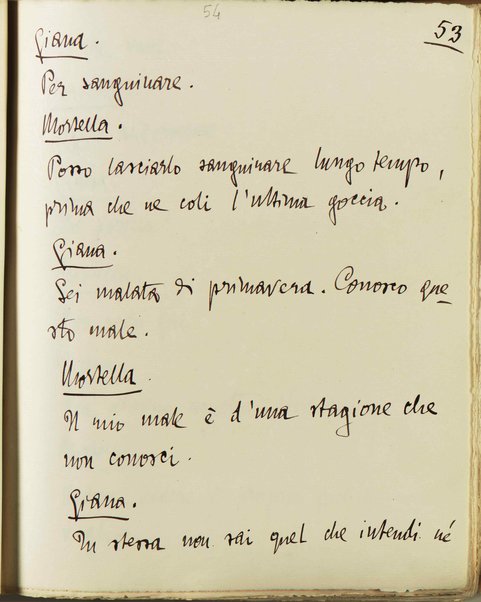 54
53
Giana.
Per sanguinare.
Mortella.
Posso lasciarlo sanguinare lungo tempo,
prima che ne coli l'ultima goccia.
Giana.
Sei malata di primavera. Conosco que
sto male.
Mortella.
Il mio male è d'una stagione che
non conosci.
Giana.
Tu stessa non sai quel che intendi né